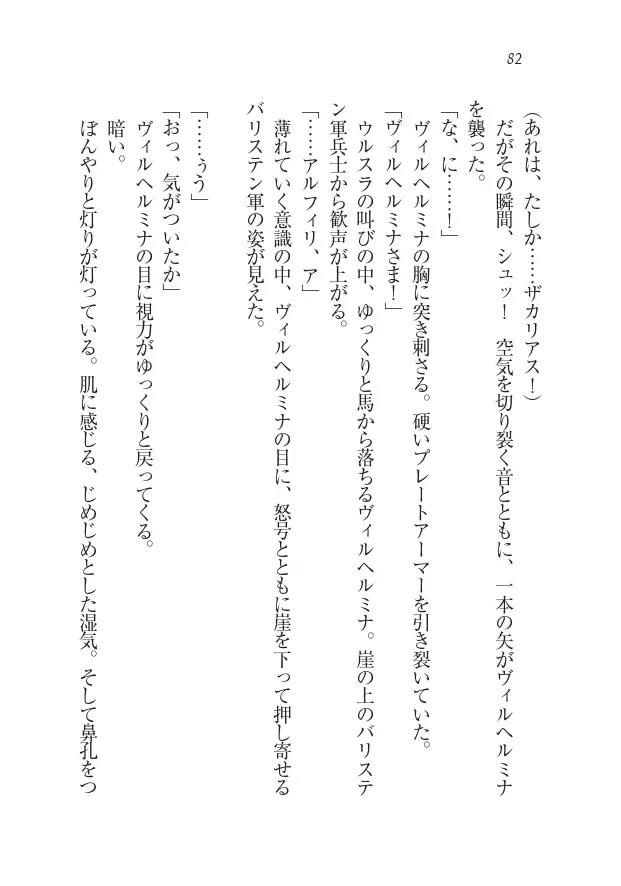 82
(あれは、たしか……ザカリアス！)
だがその瞬間、シュッ！　空気を切り裂く音とともに、一本の矢がヴィルヘルミナ
を襲った。
「な、に……！」
ヴィルヘルミナの胸に突き刺さる。硬いプレートアーマーを引き裂いていた。
「ヴィルヘルミナさま！」
ウルスラの叫びの中、ゆっくりと馬から落ちるヴィルヘルミナ。崖の上のバリステ
ン軍兵士から歓声が上がる。
「……アルフィリ、ア」
薄れていく意識の中、ヴィルヘルミナの目に、怒号とともに崖を下って押し寄せる
バリステン軍の姿が見えた。
「……ぅう」
「おっ、気がついたか」
ヴィルヘルミナの目に視力がゆっくりと戻ってくる。
暗い。
ぼんやりと灯りが灯っている。肌に感じる、じめじめとした湿気。そして鼻孔をつ